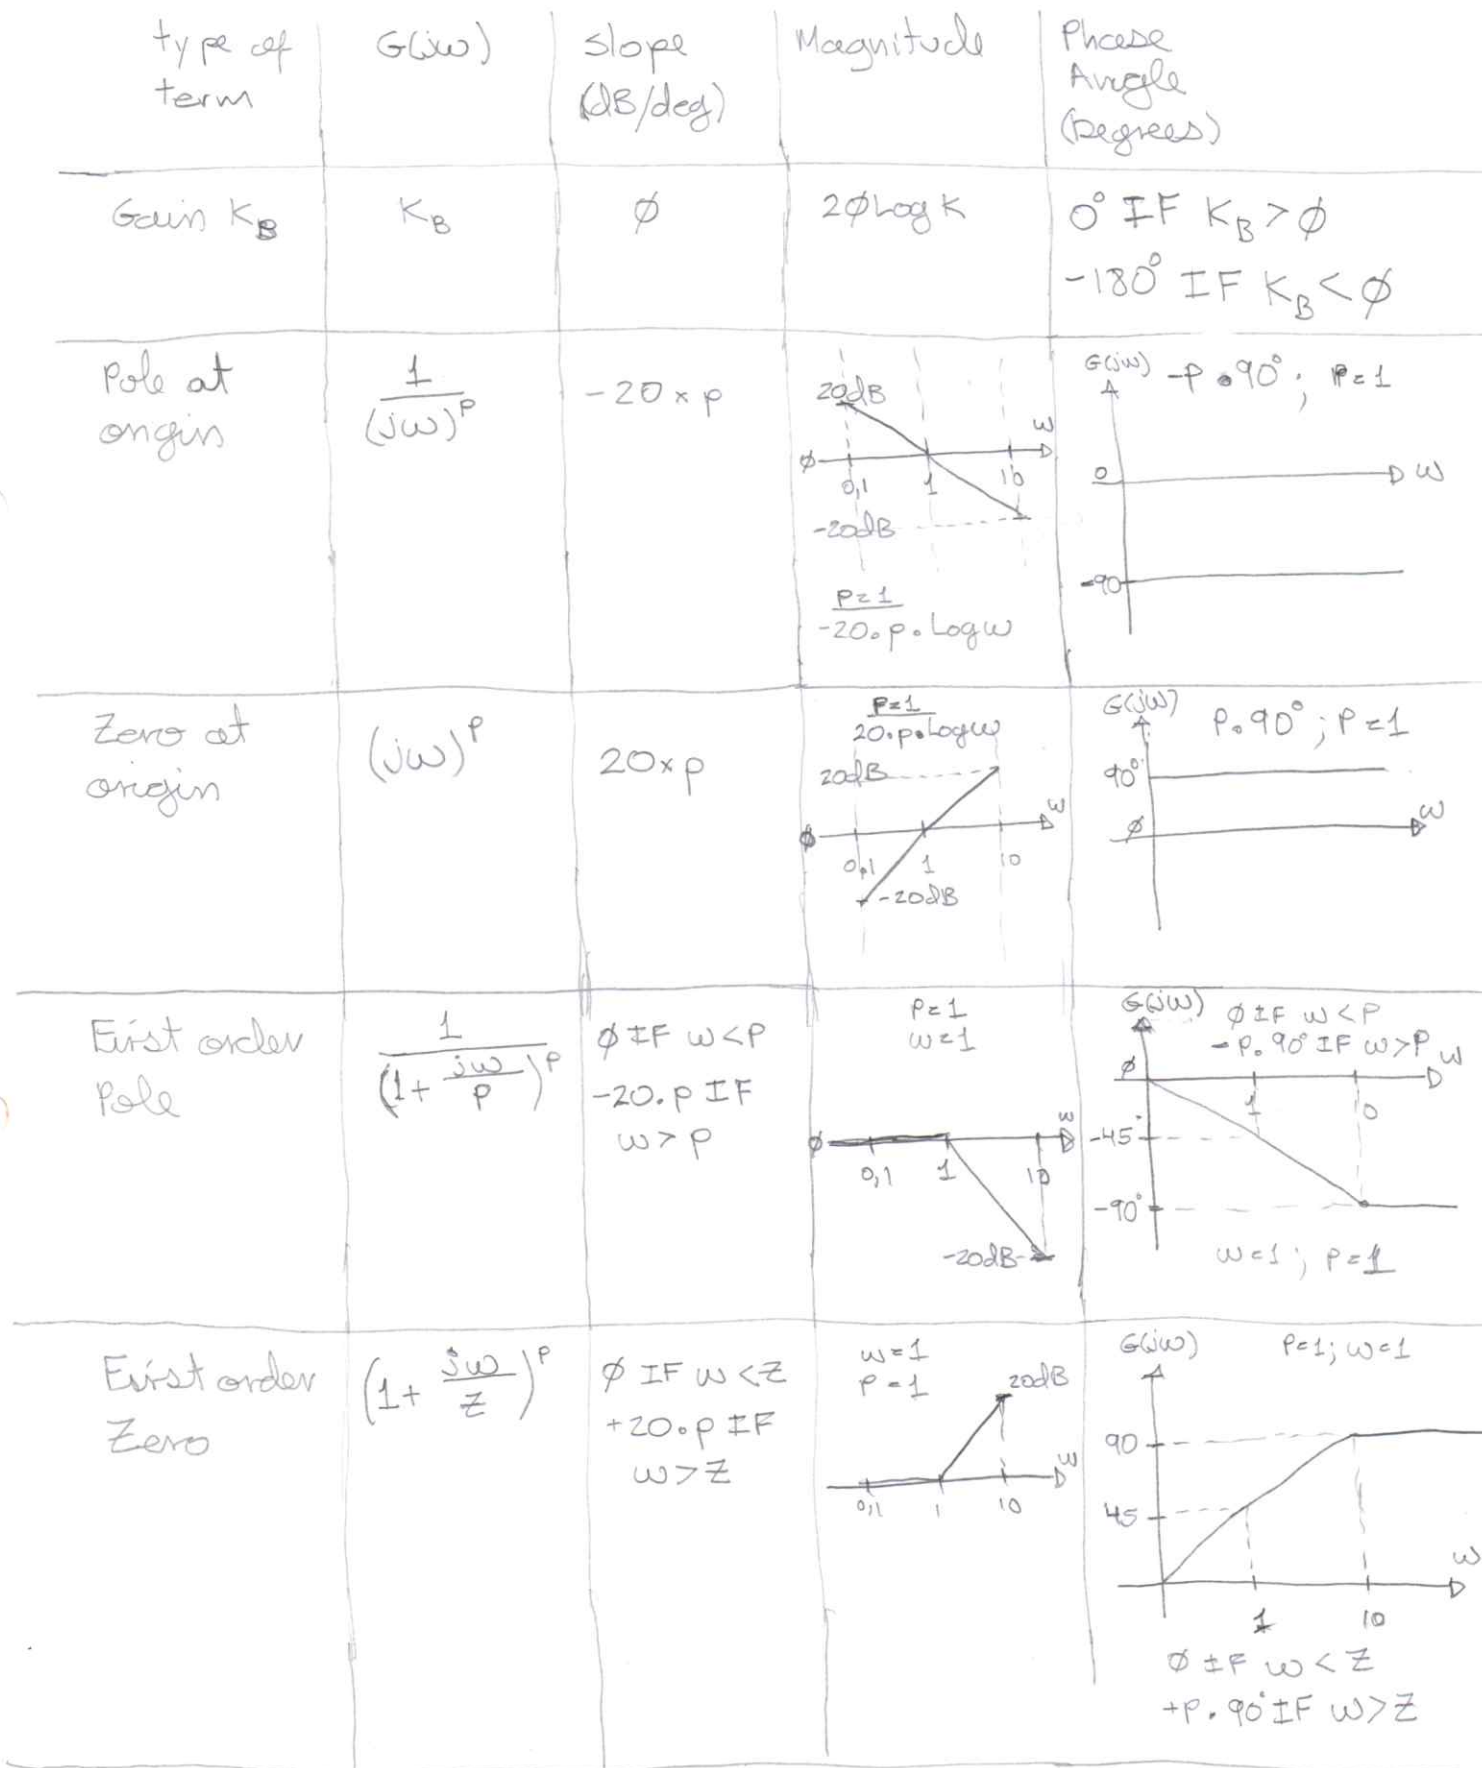 type of term
G(jω)
slope (dB/deg)
Magnitude
Phase Angle (Degrees)
Gain K_B
K_B
∅
2∅Log K
0° IF K_B > ∅
-180° IF K_B < ∅
Pole at origin
1/(jω)^P
-20 × p
20dB
ω
∅
0,1
1
10
-20dB
P=1
-20.p.Log ω
G(jω)
-P.90°; P=1
0
ω
-90
Zero at origin
(jω)^P
20×p
P=1
20.p.Log ω
20dB
ω
∅
0,1
1
10
-20dB
G(jω)
P.90°; P=1
90°
ω
∅
First order Pole
1/(1+ jω/p)^P
∅ IF ω<P
-20.p IF
ω>p
P=1
ω=1
ω
∅
0,1
1
10
-20dB
G(jω)
∅ IF ω<P
-P.90° IF ω>P
ω
∅
1
0
-45°
-90°
ω=1; P=1
First order Zero
(1+ jω/Z)^P
∅ IF ω<Z
+20.p IF
ω>Z
ω=1
P=1
20dB
ω
0,1
1
10
G(jω)
P=1; ω=1
90
45
ω
1
10
∅ IF ω<Z
+P.90° IF ω>Z